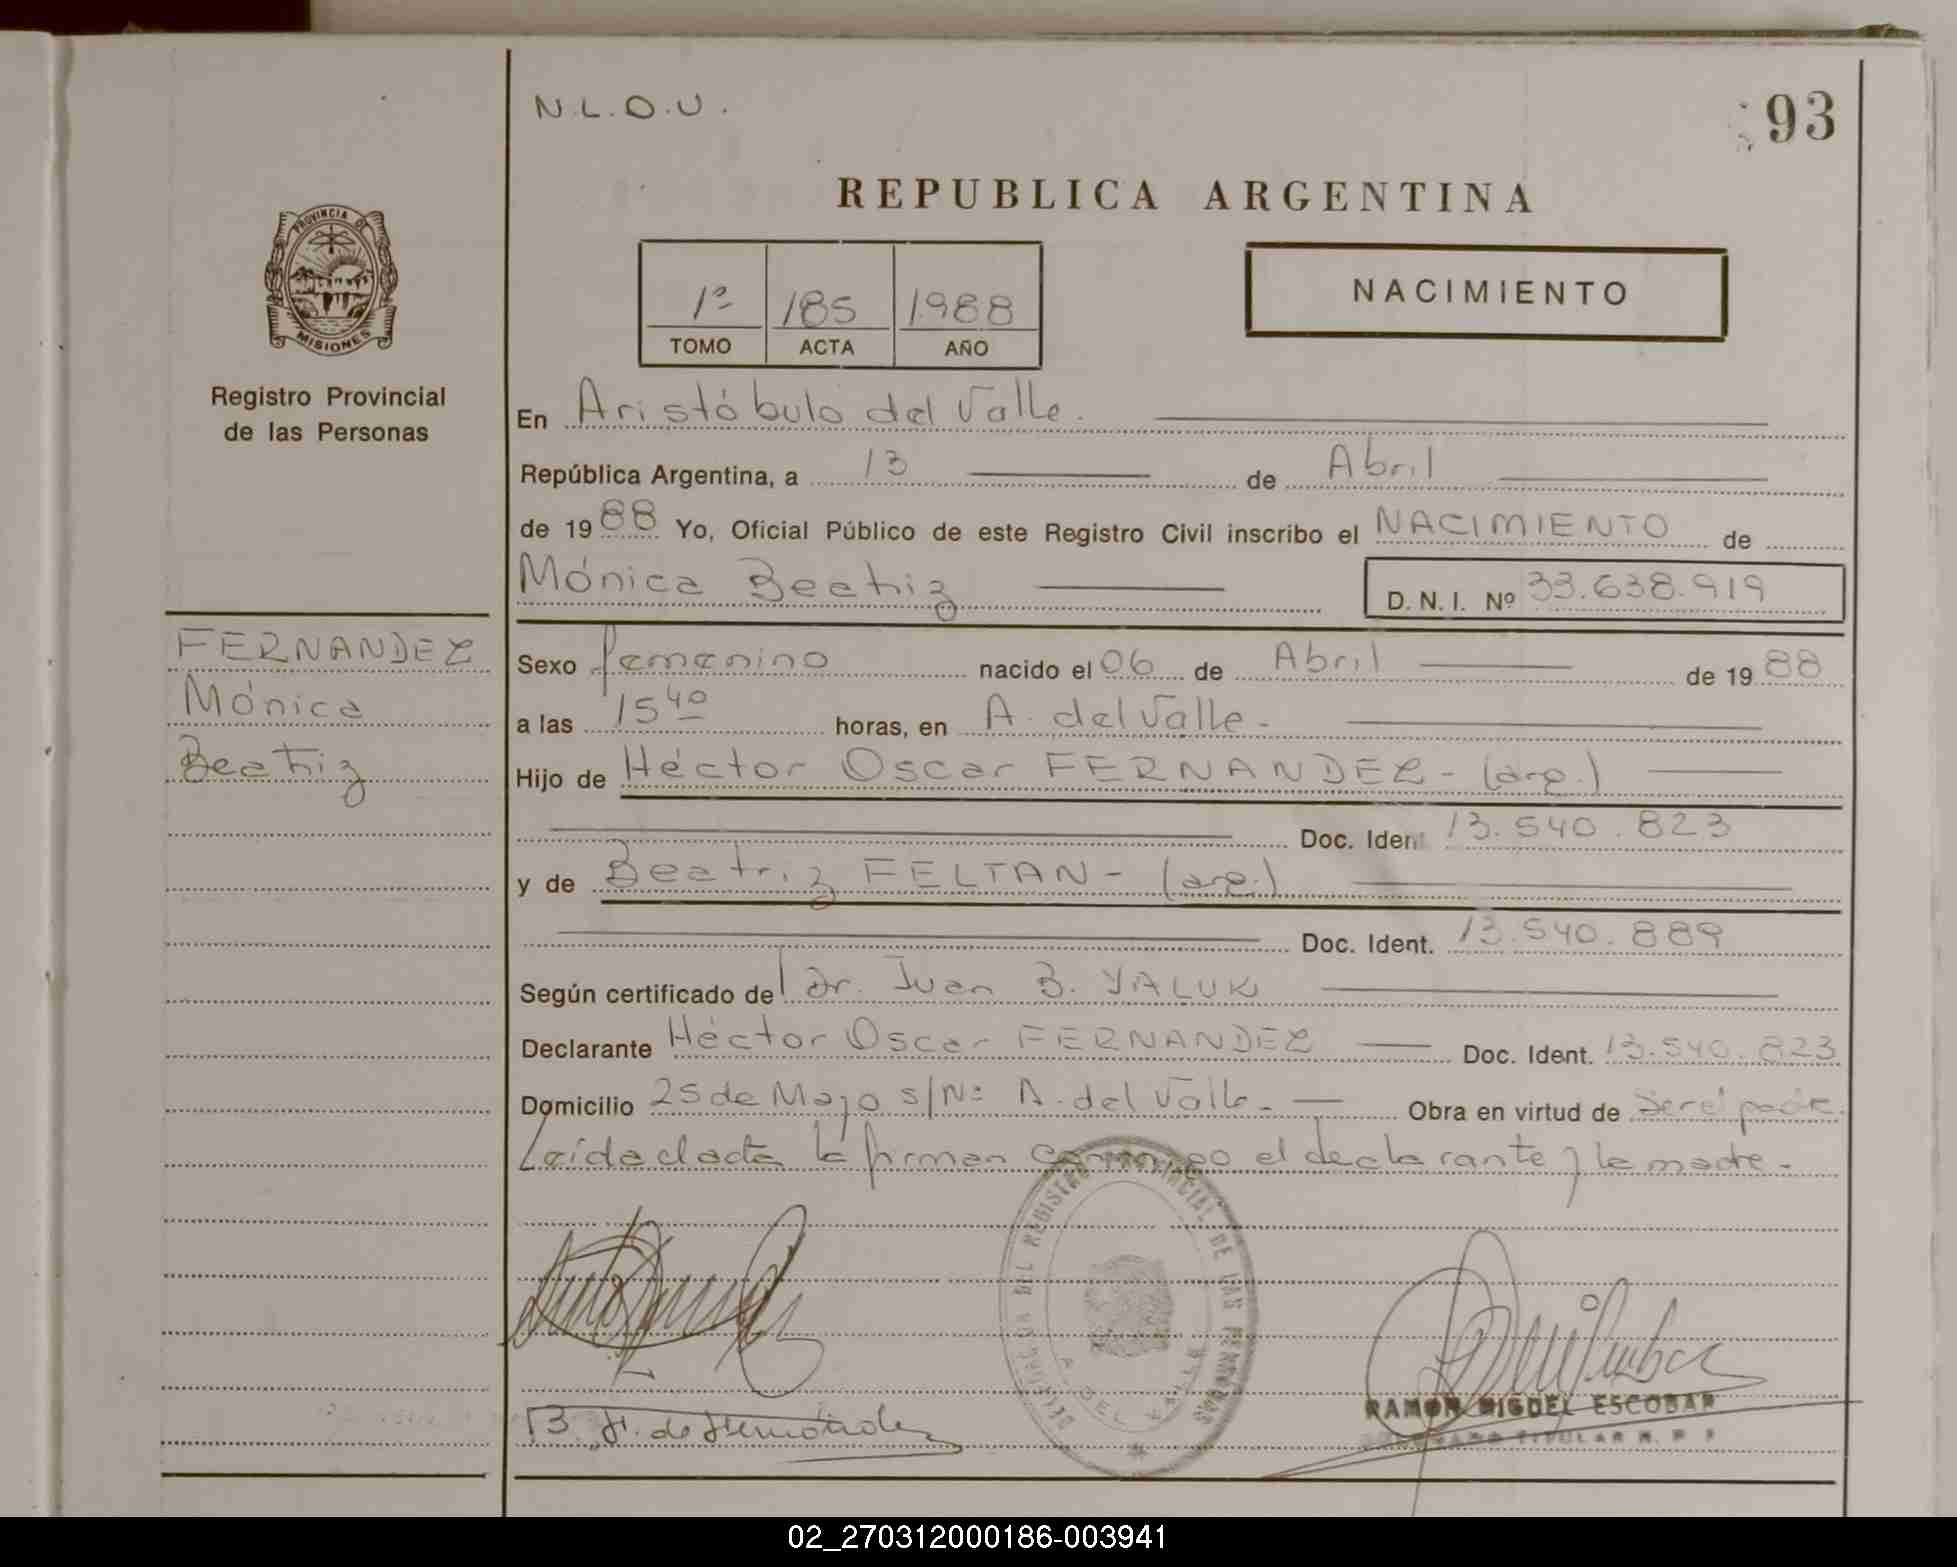 N.L.O.U.
93
REPUBLICA ARGENTINA
PROVINCIA DE MISIONES
Registro Provincial
de las Personas
1º 185 1988
TOMO ACTA AÑO
NACIMIENTO
En Aristóbulo del Valle.
República Argentina, a 13 de Abril
de 1988 Yo, Oficial Público de este Registro Civil inscribo el NACIMIENTO de
Mónica Beatriz D. N. I. Nº 33.638.919
FERNANDEZ
Mónica
Beatriz
Sexo femenino nacido el 06 de Abril de 1988
a las 15 40 horas, en A. del Valle.
Hijo de Héctor Oscar FERNANDEZ - (arg.)
Doc. Ident 13.540.823
y de Beatriz FELTAN - (arg.)
Doc. Ident. 13.540.889
Según certificado de Dr. Juan B. YALUK
Declarante Héctor Oscar FERNANDEZ Doc. Ident. 13.540.823
Domicilio 25 de Mayo s/Nº A. del Valle. Obra en virtud de Ser el padre.
Leída el acta la firman conmigo el declarante y la madre.
DELEGACIA DEL REGISTRO PROVINCIAL DE LAS PERSONAS
A. DEL VALLE
B. F. de Fernández
RAMON MIGUEL ESCOBAR
TITULAR R. P. P.
02_270312000186-003941